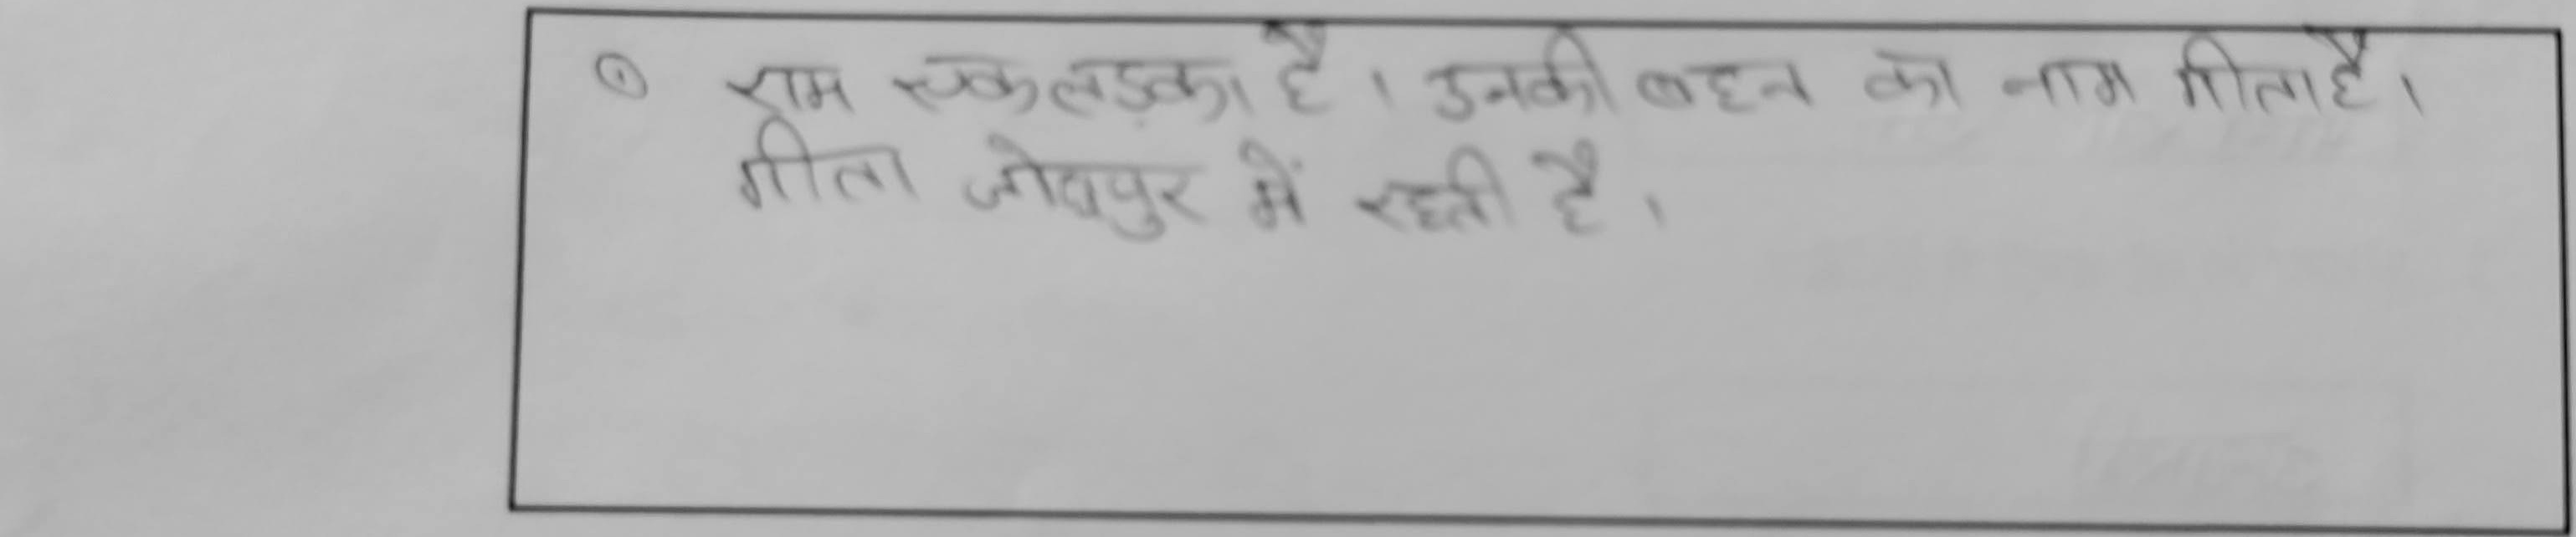 ① राम एक लड़का है। उनकी बहन का नाम गीता है।
गीता जोधपुर में रहती है।